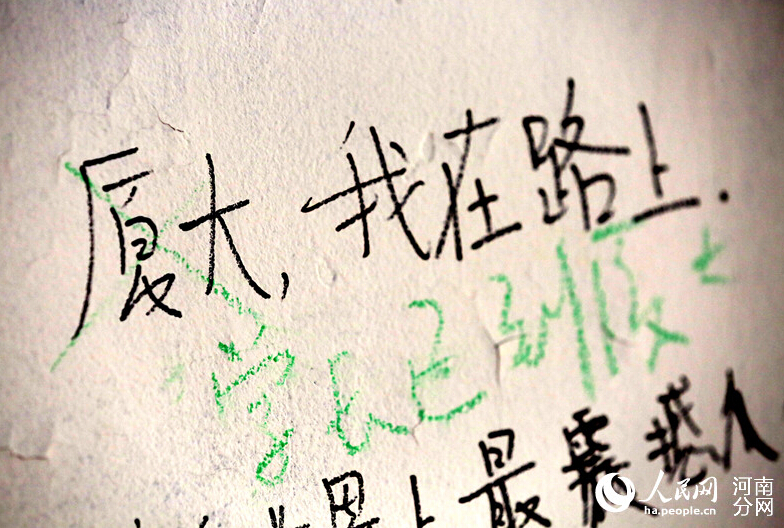 厦大,我在路上.
学姐已到厦大
世界上最震撼人
人民网 河南分网
ha.people.cn